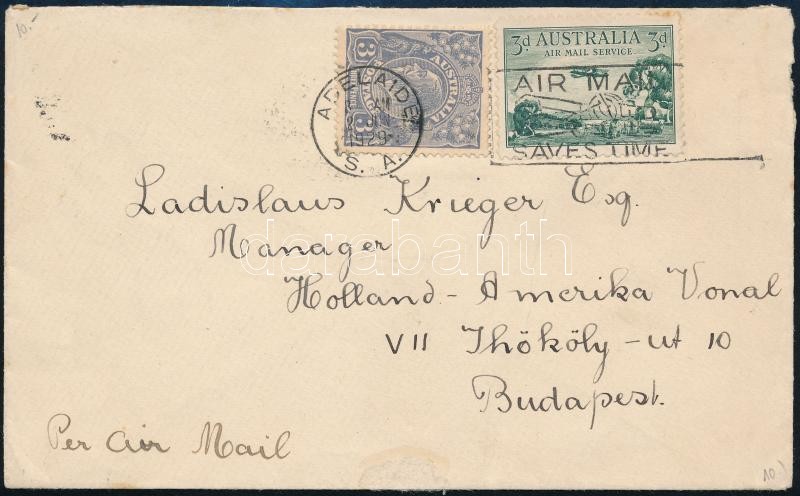 10.-
3d AUSTRALIA 3d
AIR MAIL SERVICE
AUSTRALIA
ADELAIDE
1929
S. A.
AIR MAIL
SAVES TIME
Ladislaus Krieger Esq.
Manager
darabanth
Holland - Amerika Vonal
VII Thököly - ut 10
Budapest.
Per Air Mail
10.)